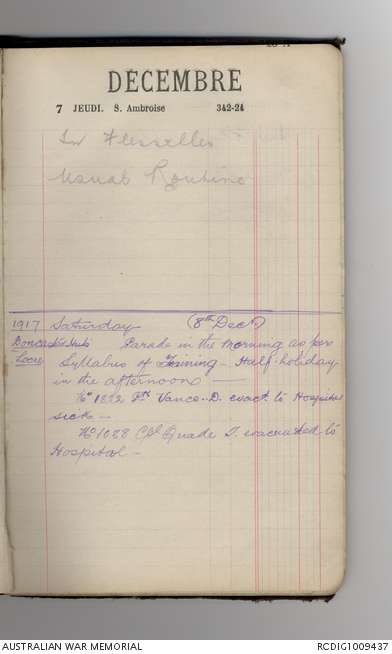 DÉCEMBRE
7 JEUDI. S. Ambroise 342-24
In Flesselles
Usual Routine
1917 Saturday (8th Dec)
Parade in the Morning as per
Locre Syllabus of Trining - Half-holiday
in the afternoon —
No 1832 Pte Vance. D. evact to Hospital
sick -
No 1088 Cpl Quade T. evacuated to
Hospital -
AUSTRALIAN WAR MEMORIAL RCDIG1009437